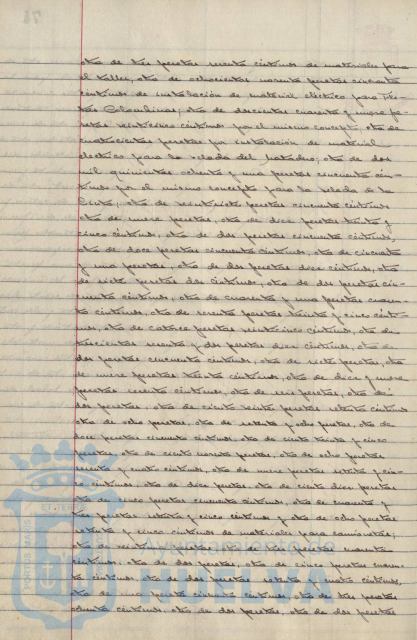 otra de tres pesetas sesenta céntimos de materiales para
el taller, otra de ochocientas noventa pesetas cincuenta
céntimos de instalación de material eléctrico para Fies-
tas Colombinas; otra de doscientas cuarenta y nueve pe-
setas veinticinco céntimos por el mismo concepto, otra de
cuatrocientas pesetas por instalación de material
eléctrico para la velada del matadero; otra de dos
mil quinientas ochenta y una pesetas cincuenta cén-
timos por el mismo concepto para la velada de la
Cinta; otra de veintiseis pesetas cincuenta céntimos
otra de nueve pesetas, otra de doce pesetas treinta y
cinco céntimos, otra de dos pesetas cincuenta céntimos,
otra de doce pesetas cincuenta céntimos, otra de cincuenta
y una pesetas, otra de dos pesetas doce céntimos, otra
de siete pesetas dos céntimos, otra de dos pesetas cin-
cuenta céntimos, otra de cuarenta y una pesetas cuaren-
ta céntimos, otra de sesenta pesetas treinta y cinco cénti-
mos, otra de catorce pesetas veinticinco céntimos, otra de
trescientas sesenta y dos pesetas diez céntimos, otra de
dos pesetas cincuenta céntimos, otra de siete pesetas, otra
de nueve pesetas treinta céntimos, otra de diez y nueve
pesetas sesenta céntimos, otra de seis pesetas, otra de
dos pesetas, otra de ciento veinte pesetas setenta céntimos
otra de ocho pesetas, otra de setenta y ocho pesetas, otra de
doce pesetas cincuenta céntimos, otra de ciento treinta y cinco
pesetas, otra de ciento noventa pesetas, otra de ocho pesetas
sesenta y cuatro céntimos, otra de nueve pesetas setenta y cin-
co céntimos, otra de diez pesetas, otra de ciento diez pesetas
otra de cinco pesetas cincuenta céntimos, otra de cuarenta y
tres pesetas setenta y cinco céntimos y otra de ocho pesetas
setenta y cinco céntimos de materiales para camionetas;
otra de veinte pesetas, otra de tres pesetas cuarenta
céntimos, otra de dos pesetas, otra de cinco pesetas cuaren-
ta céntimos, otra de dos pesetas setenta y cuatro céntimos,
otra de una peseta cincuenta céntimos, otra de tres pesetas
ochenta céntimos, otra de dos pesetas, otra de dos pesetas
Ayuntamiento de
HUELVA